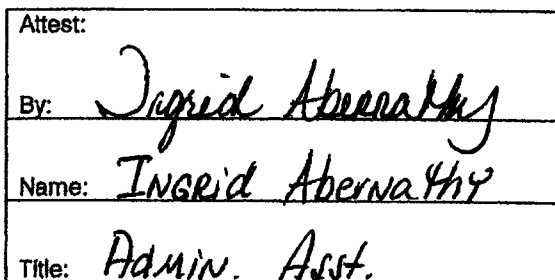 Attest:
By: Ingrid Abernathy
Name: INGRid AberNathy
Title: Admin. Asst.